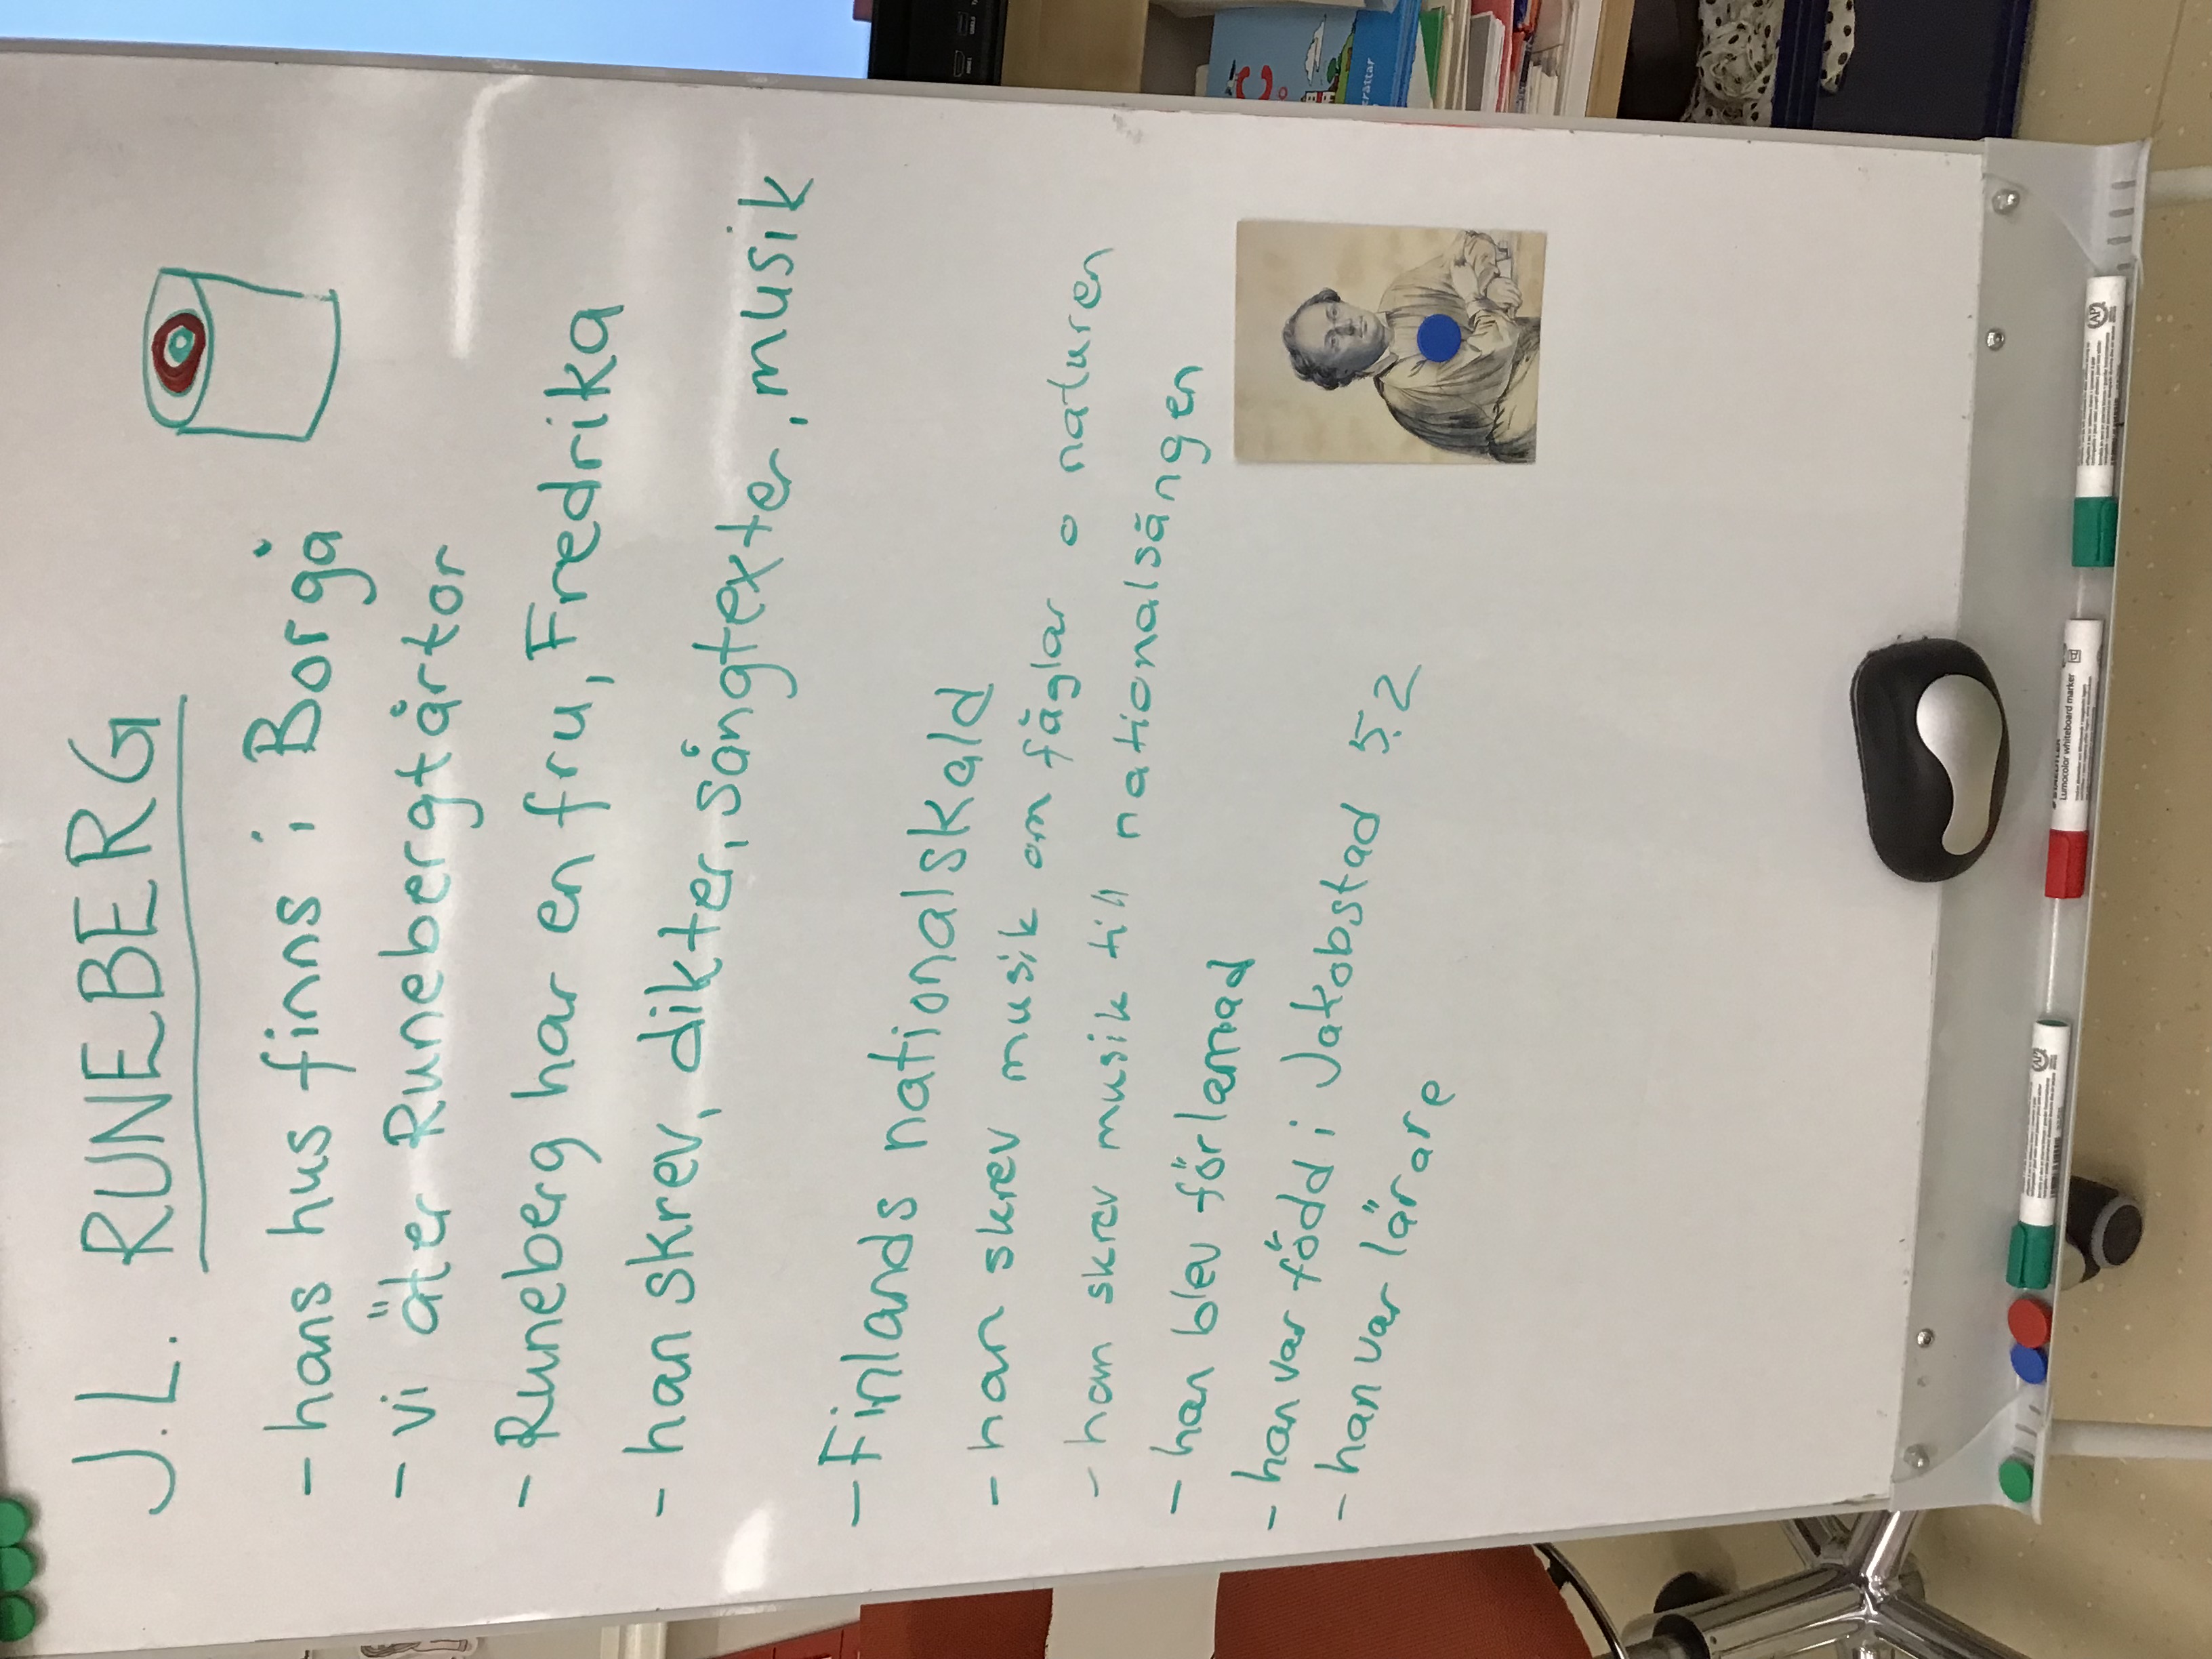 J.L. RUNEBERG
- hans hus finns i Borgå
- vi äter Runebergtårtor
- Runeberg har en fru, Fredrika
- han skrev, dikter, sångtexter, musik
- Finlands nationalskald
- han skrev musik om fåglar o naturen
- han skrev musik till nationalsången
- han blev förlamad
- han var född i Jakobstad 5.2
- han var lärare
rättar
Lumocolor whiteboard marker